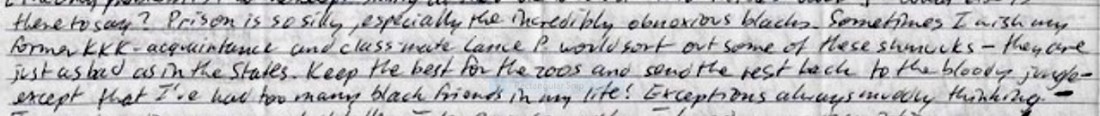 there to say? Prison is so silly, especially the incredibly obnoxious blacks. Sometimes I wish my
former KKK-acquaintance and classmate Lance P. would sort out some of these shmucks – they are
just as bad as in the States. Keep the best for the zoos and send the rest back to the bloody jungle –
except that I've had too many black friends in my life! Exceptions always muddy thinking. –